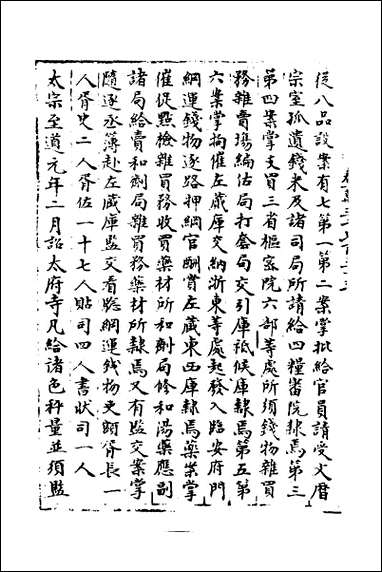 從八品設案有七第一第二案掌批給官員請受文曆
宗室孤遺錢米及諸司局所請給四糧審院隸焉第三
第四案掌支買三省樞密院六部等處所須錢物雜買
務雜賣場編估局打套局交引庫祗候庫隸焉第五第
六案掌拘催左藏庫交納浙東等處起發入臨安府門
綱運錢物逐路押綱官酬賞左藏東西庫隸焉藥案掌
催促點檢雜買務收買藥材所和劑局修和湯藥應副
諸局給賣和劑局雜買務藥材所隸焉又有監交案掌
隨逐丞簿赴左藏庫監交看驗綱運錢物吏額胥長一
人胥史二人胥佐一十七人貼司四人書狀司一人
太宗至道元年二月詔太府寺凡給諸色秤量並須監